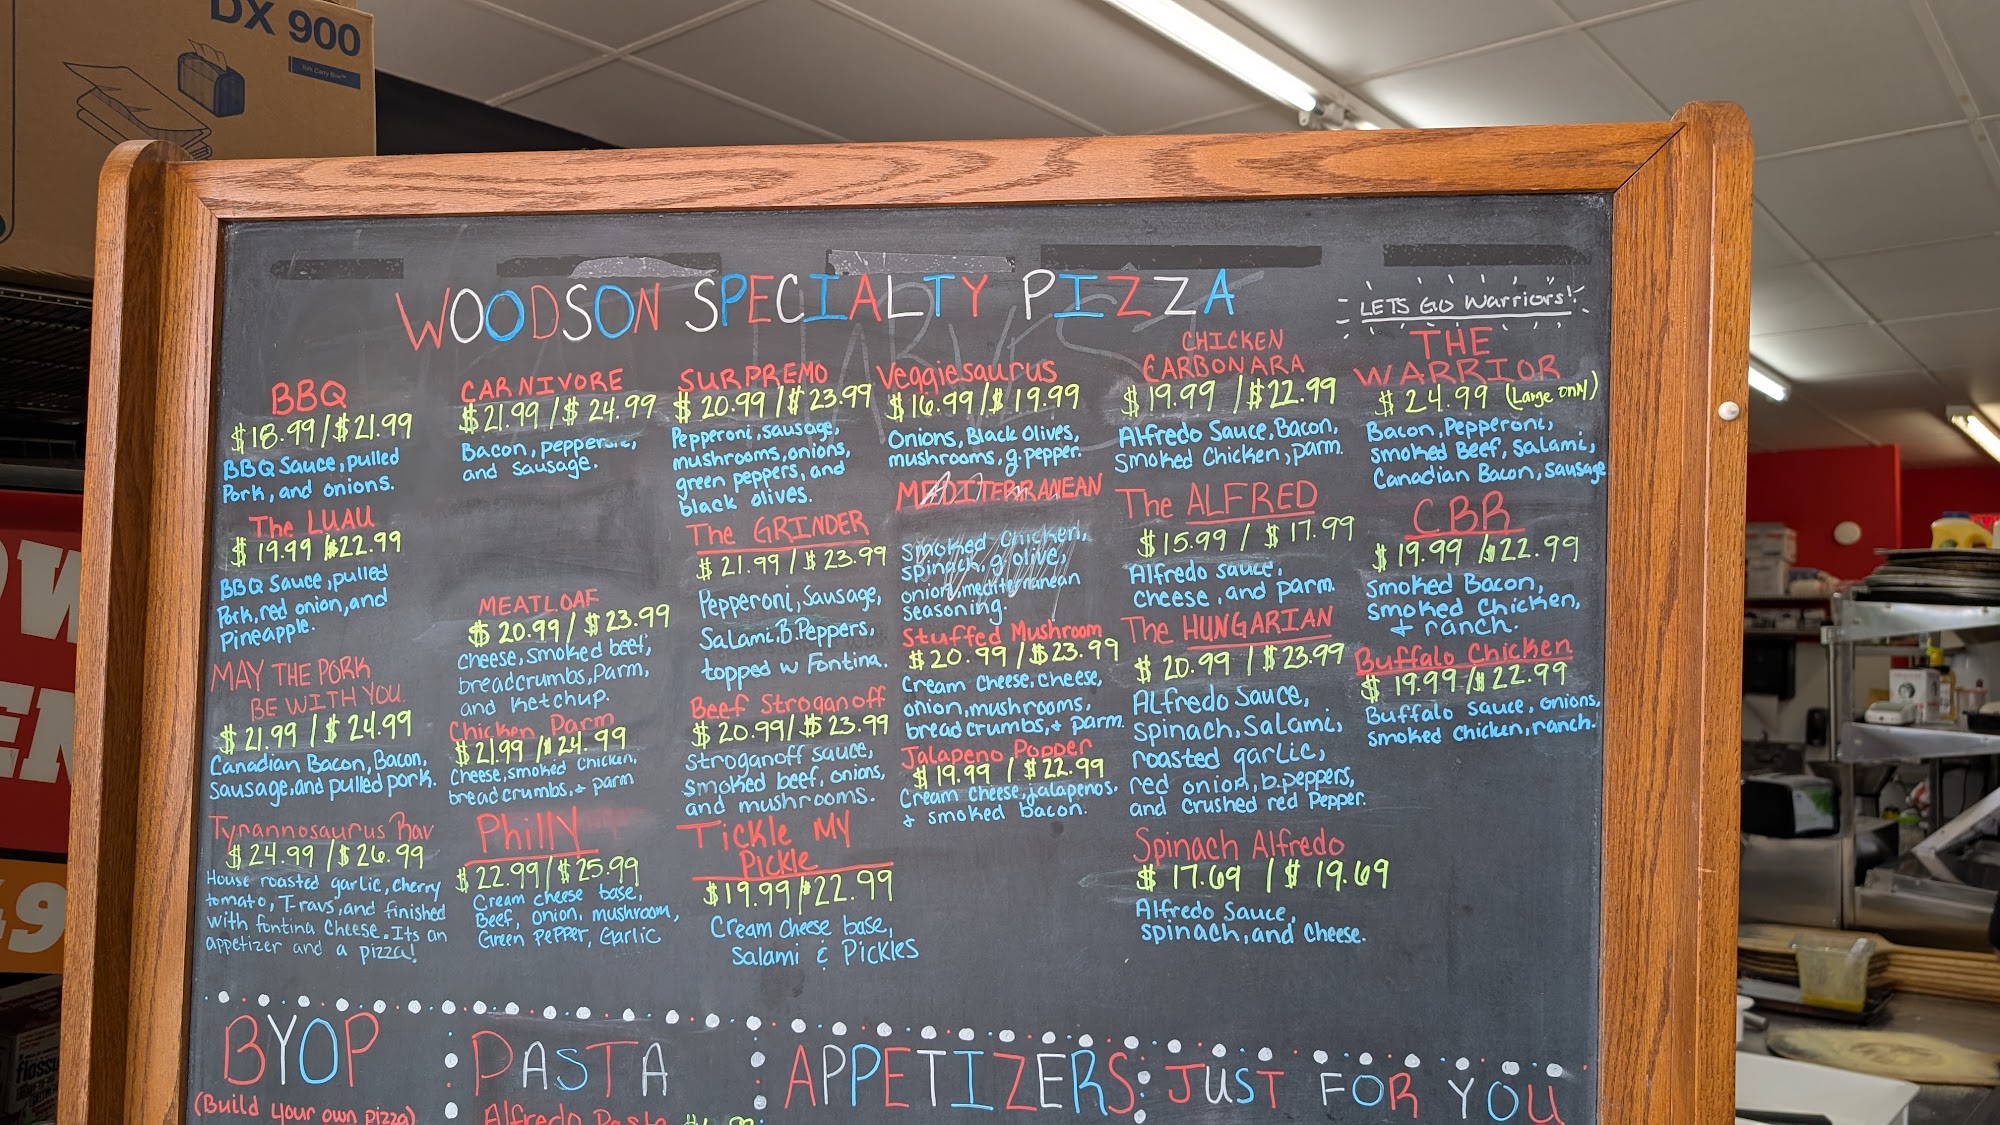 DX 900
Tork Carry Box™
WOODSON SPECIALTY PIZZA
LETS GO Warriors!
BBQ
$18.99/$21.99
BBQ Sauce, pulled
Pork, and onions.
The LUAU
$19.99/$22.99
BBQ Sauce, pulled
Pork, red onion, and
Pineapple.
MAY THE PORK
BE WITH YOU
$21.99/$24.99
Canadian Bacon, Bacon,
Sausage, and pulled pork.
Tyrannosaurus Rav
$24.99/$26.99
House roasted garlic, cherry
tomato, T-ravs, and finished
with fontina cheese. Its an
appetizer and a pizza!
CARNIVORE
$21.99/$24.99
Bacon, pepperoni,
and sausage.
MEATLOAF
$20.99/$23.99
Cheese, smoked beef,
breadcrumbs, Parm,
and Ketchup.
Chicken Parm
$21.99/$24.99
Cheese, smoked chicken,
breadcrumbs, + parm
Philly
$22.99/$25.99
Cream cheese base,
Beef, onion, mushroom,
Green Pepper, Garlic
SURPREMO
$20.99/$23.99
Pepperoni, sausage,
mushrooms, onions,
green peppers, and
black olives.
The GRINDER
$21.99/$23.99
Pepperoni, Sausage,
Salami, B.Peppers,
topped w Fontina.
Beef Stroganoff
$20.99/$23.99
Stroganoff sauce,
smoked beef, onions,
and mushrooms.
Tickle MY
Pickle
$19.99/$22.99
Cream cheese base,
Salami & Pickles
Veggiesaurus
$16.99/$19.99
Onions, Black Olives,
mushrooms, g.pepper.
MEDITERRANEAN
Smoked Chicken,
spinach, g.olive,
onion, mediterranean
seasoning.
Stuffed Mushroom
$20.99/$23.99
Cream cheese, cheese,
onion, mushrooms,
breadcrumbs, + parm.
Jalapeno Popper
$19.99/$22.99
Cream cheese, jalapenos,
+ smoked bacon.
CHICKEN
CARBONARA
$19.99/$22.99
Alfredo Sauce, Bacon,
Smoked Chicken, parm.
The ALFRED
$15.99/$17.99
Alfredo sauce,
cheese, and parm.
The HUNGARIAN
$20.99/$23.99
Alfredo Sauce,
spinach, Salami,
roasted garlic,
red onion, b.peppers,
and crushed red Pepper.
Spinach Alfredo
$17.69/$19.69
Alfredo Sauce,
spinach, and cheese.
THE
WARRIOR
$24.99 (Large only)
Bacon, Pepperoni,
smoked Beef, Salami,
Canadian Bacon, sausage
CBR
$19.99/$22.99
Smoked Bacon,
smoked chicken,
+ ranch.
Buffalo Chicken
$19.99/$22.99
Buffalo sauce, onions,
smoked chicken, ranch.
BYOP
(Build your own pizza)
PASTA
Alfredo Pasta
APPETIZERS
JUST FOR YOU